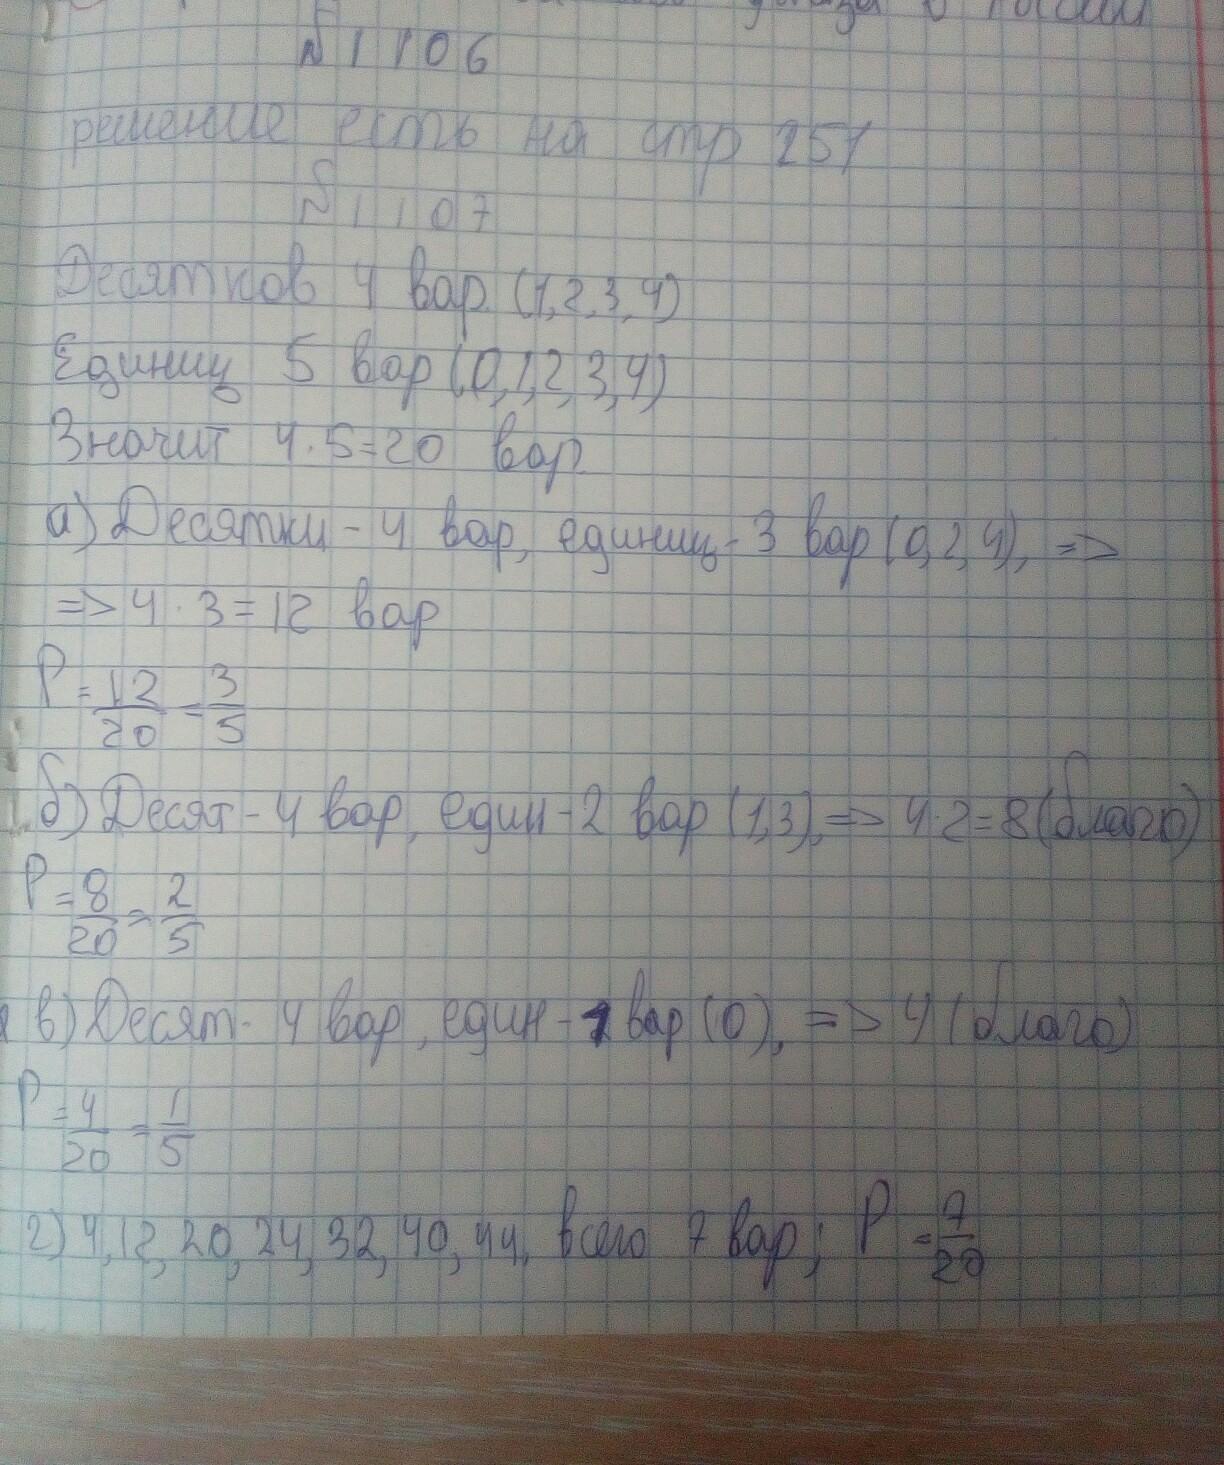 №1106
решение есть на стр 251
№1107
Десятков 4 вар. (1,2,3,4)
Единиц 5 вар (0,1,2,3,4)
Значит 4·5=20 вар.
а) Десятки - 4 вар, единиц - 3 вар (0,2,4), =>
=> 4·3=12 вар
P = 12/20 = 3/5
б) Десят - 4 вар, един - 2 вар (1,3), => 4·2=8 (благо)
P = 8/20 = 2/5
в) Десят - 4 вар, един - 1 вар (0), => 4 (благо)
P = 4/20 = 1/5
г) 4, 12, 20, 24, 32, 40, 44, всего 7 вар; P = 7/20